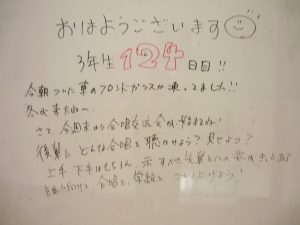 おはようございます
3年生 124日目!!
今朝ついに車のフロントガラスが凍ってました!!
冬が来たね〜
さて、今週末から合唱交流会が始まるね!
後輩にどんな合唱を聴かせよう?見せよう?
上手下手はもちろん 示すべき先輩としての姿が
合唱を、学級を つくり上げよう!